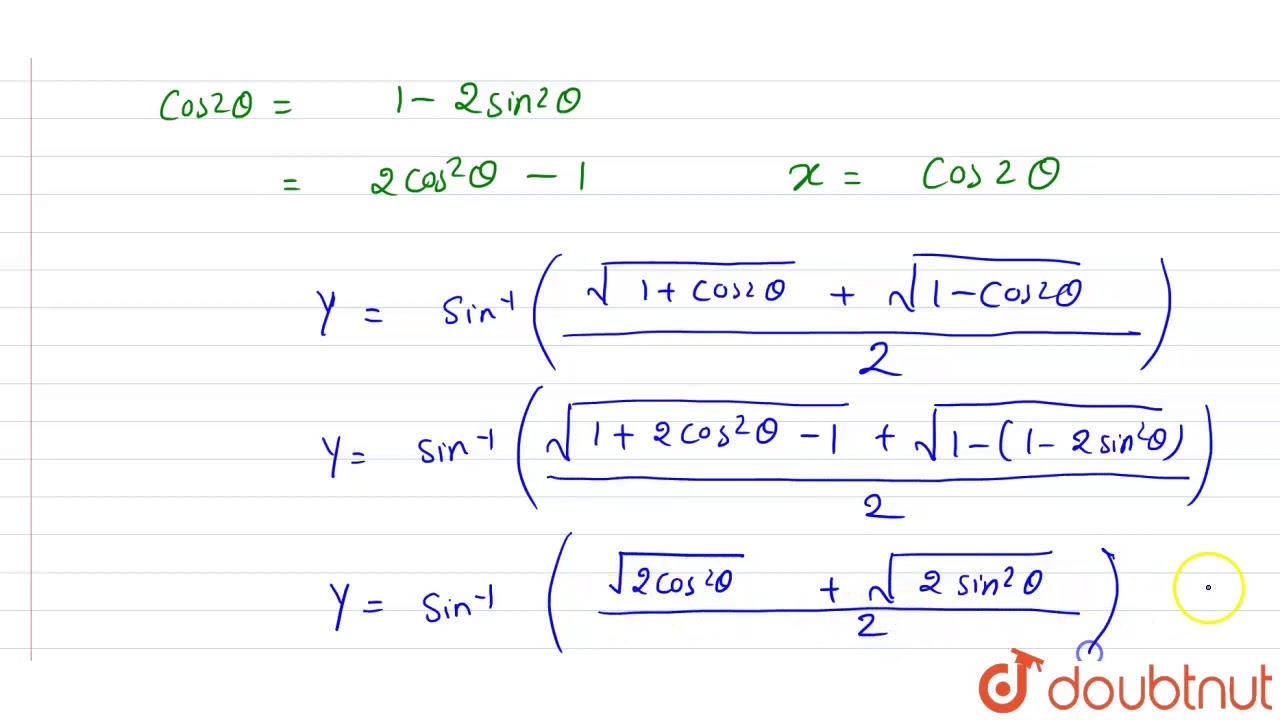 Cos2θ = 1 - 2sin2θ
= 2cos²θ - 1 x = Cos2θ
Y = Sin⁻¹(√(1+cos2θ) + √(1-Cos2θ) / 2)
Y = sin⁻¹(√(1+2cos²θ-1) + √(1-(1-2sin²θ)) / 2)
Y = Sin⁻¹(√(2cos²θ) + √(2sin²θ) / 2)
doubtnut